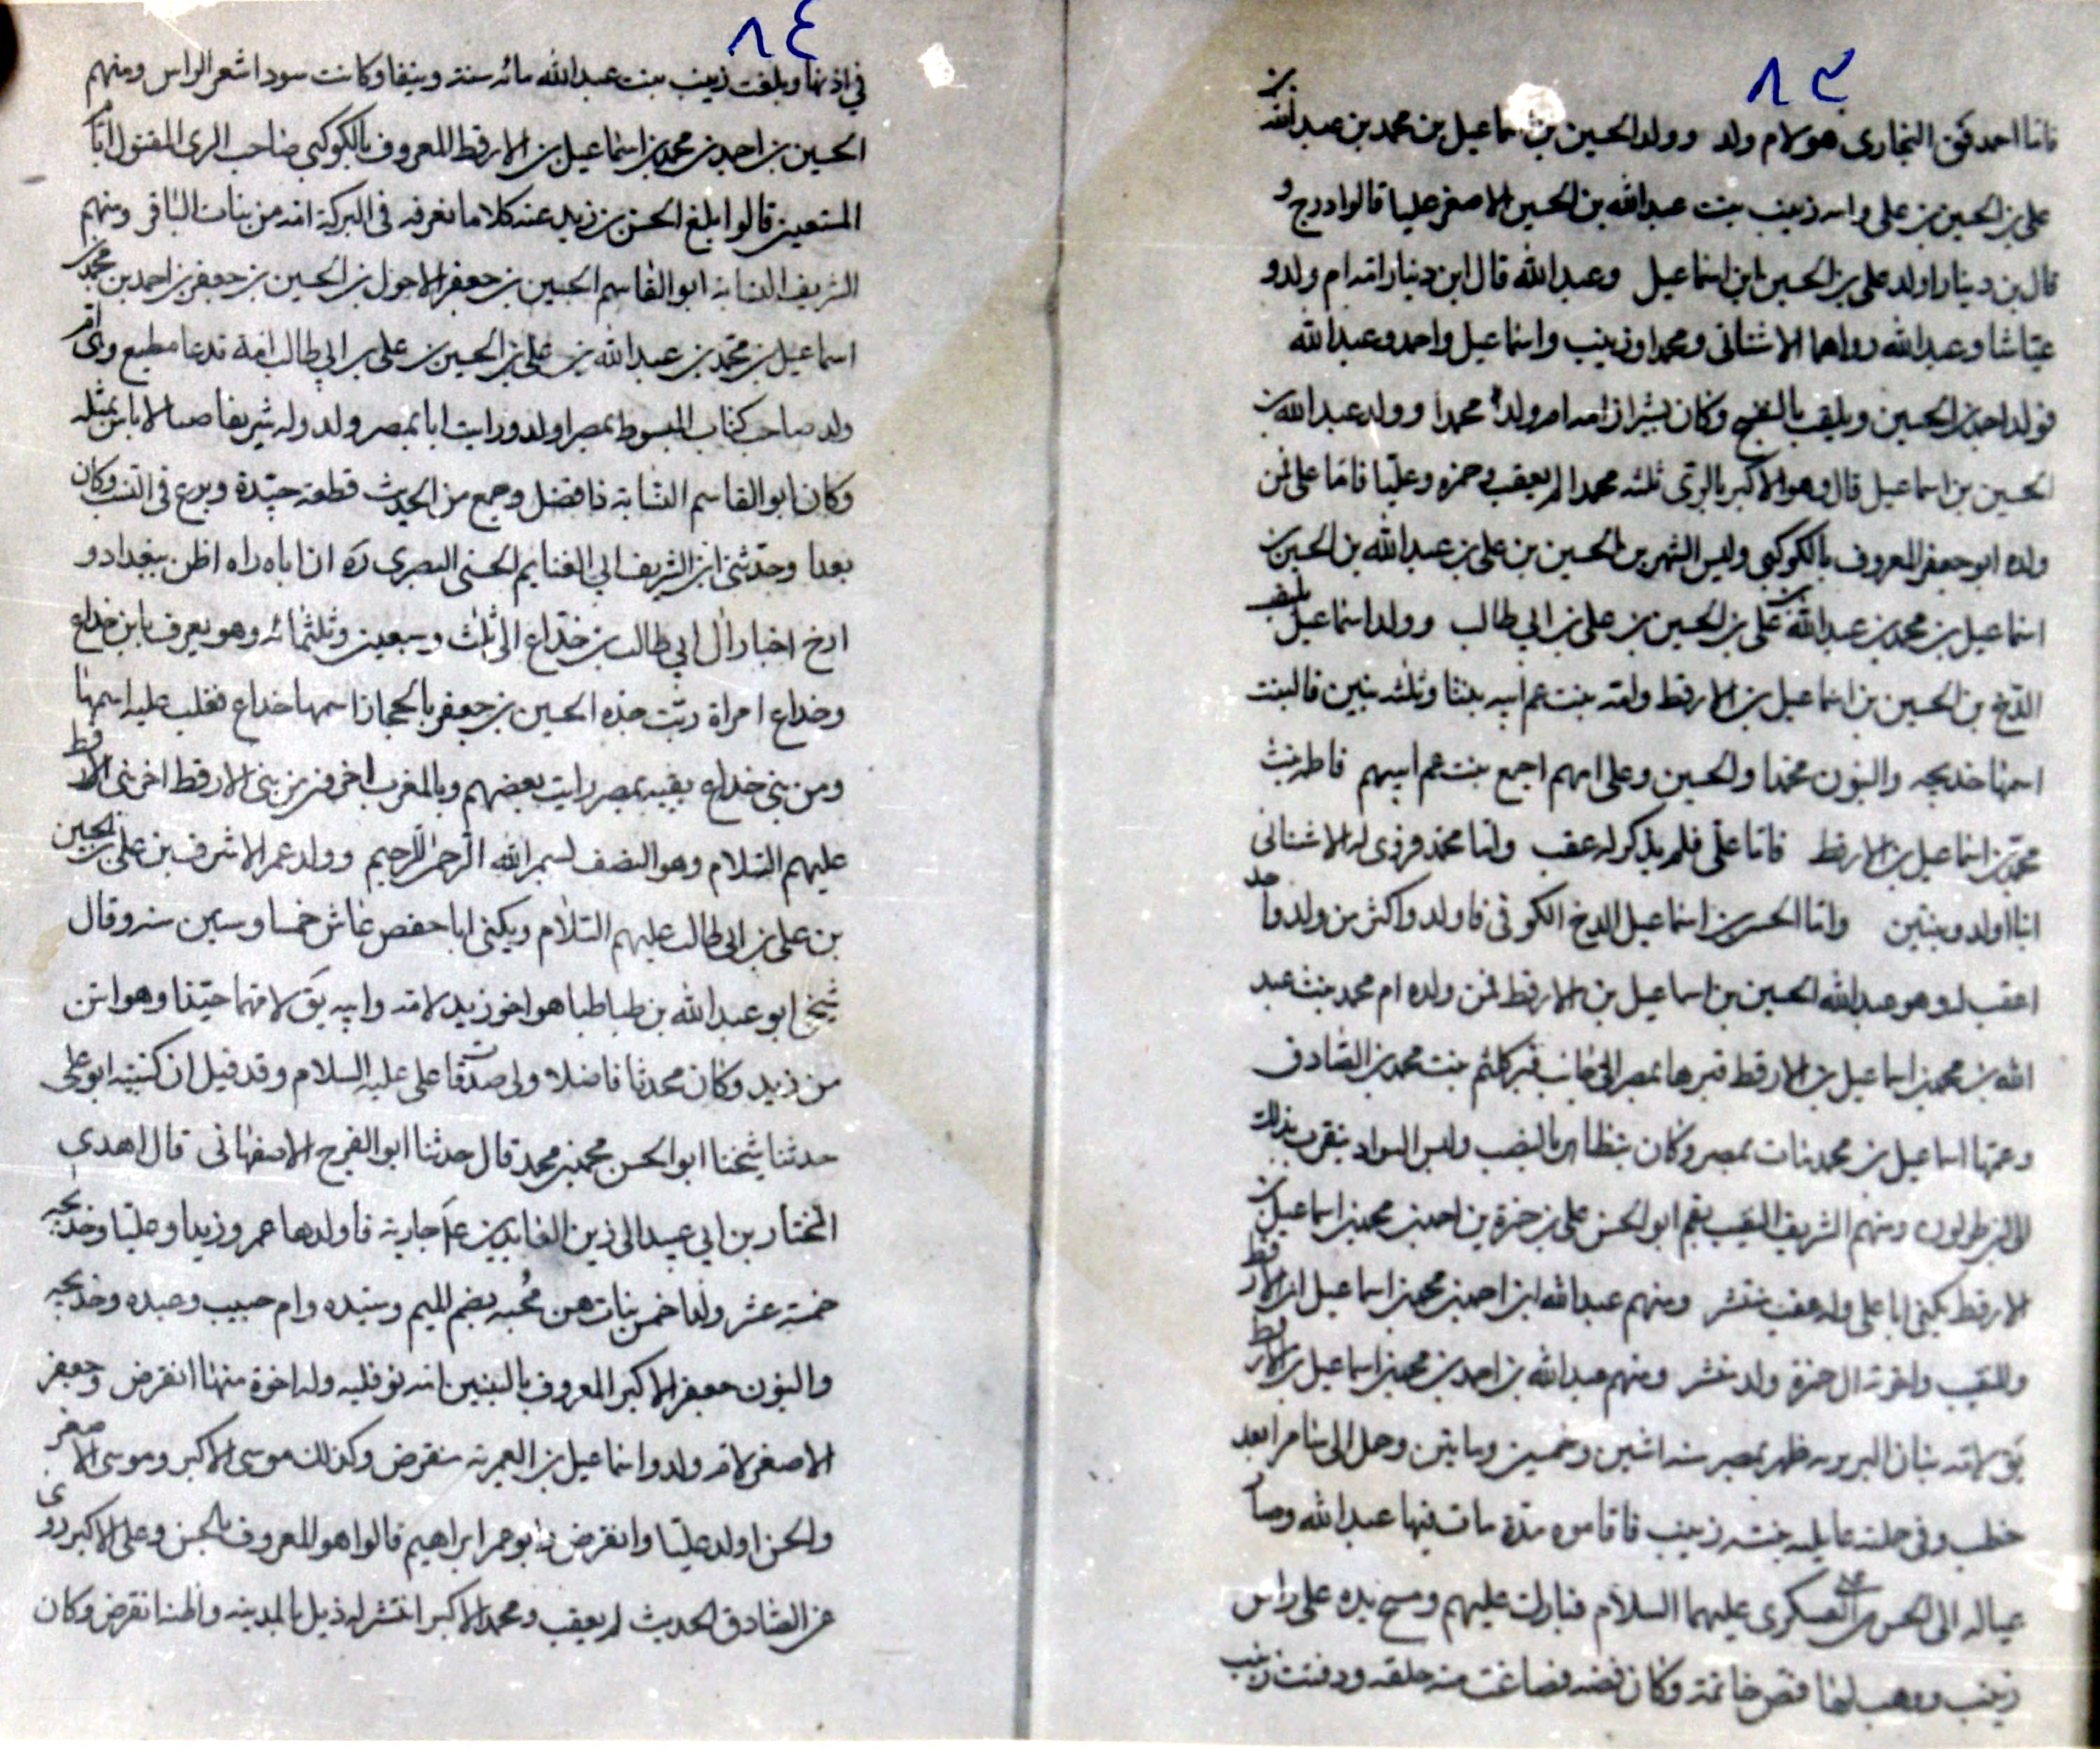 ٨٣
فاما احمد فكن البخارى هو لام ولد وولد الحسين بن اسماعيل بن محمد بن عبدالله بن
على بن الحسين بن على وامه زينب بنت عبدالله بن الحسين الاصغر عليا قالوا درج و
قال بن دينار اولد على بن الحسين بن اسماعيل وعبدالله قال ابن دينار امه ام ولد و
عياشا وعبدالله رواهما الاشنانى ومحمدا وزينب واسماعيل واحمد وعبدالله
فولد احمد بن الحسين ويلقب بالنفخ وكان بشيراز امه ام ولد محمدا وولد عبدالله بن
الحسين بن اسماعيل قال وهو الاكبر بالرى ثلثه محمدا لم يعقب وحمزه وعليا فاما على فمن
ولده ابو جعفر المعروف بالكوكبى وليس الشهر بن الحسين بن على بن عبدالله بن الحسين بن
اسماعيل بن محمد بن عبدالله بن على بن الحسين بن على بن ابي طالب وولد اسماعيل
الدخ بن الحسين بن اسماعيل بن الارقط وامه بنت عم ابيه بنتا وثلثه بنين فالبنت
اسمها خديجه والبنون محمدا والحسين وعلى امهم اجمع بنت عم ابيهم فاطمه بنت
محمد بن اسماعيل بن الارقط فاما على فلم يذكر له عقب واما محمد فروى له الاشنانى
ابنا اولد وبنتين واما الحسين بن اسماعيل الدخ الكوفى فاولد واكثر من ولد واحد
اعقب له وهو عبدالله الحسين بن اسماعيل بن الارقط فمن ولده ام محمد بنت عبد
الله بن محمد بن اسماعيل بن الارقط قبرها بمصر الى جانب قبر كلثم بنت محمد بن الصادق
وعمها اسماعيل بن محمد مات بمصر وكان يتظاهر بالنصب ولبس السواد يتقرب بذلك
الى ابن طولون ومنهم الشريف النقيب بقم ابو الحسن على بن حمزة بن احمد بن محمد بن اسماعيل بن
الارقط يكنى ابا على وله عقب منتشر ومنهم عبدالله ابن احمد بن محمد بن اسماعيل ابن الارقط
وللنقيب واخوته ال حمزة ولد منتشر ومنهم عبدالله بن احمد بن محمد بن اسماعيل بن الارقط
يق لامه بنان البربريه ظهر بمصر سنه اثنين وخمسين وماتين وحمل الى سامرا بعد
خطب وفى حملته عايلته بنته زينب فاقاموه مدة مات فيها عبدالله وصار
عياله الى الحسن بن على العسكرى عليهما السلام فبارك عليهم ومسح يده على راس
زينب ووهب لها فص خاتمه وكان فضه فصاغت منه حلقه ودفنت زينب
٨٤
فى اذنها وبلغت زينب بنت عبدالله مائه سنة ونيفا وكانت سودا شعر الراس ومنهم
الحسين بن احمد بن محمد بن اسماعيل بن الارقط المعروف بالكوكبى صاحب الرى المقتول ايام
المستعين قالوا بلغ الحسن بن زيد عنه كلاما نغرقه فى البركة امه من بنات الباقر ومنهم
الشريف النسابه ابو القاسم الحسين بن جعفر الاحول بن الحسين بن جعفر بن احمد بن محمد بن
اسماعيل بن محمد بن عبدالله بن على بن الحسين بن على بن ابي طالب امه تدعا مطيع وام
ولد صاحب كتاب المبسوط بمصر اولد ورايت ابا بمصر ولد وله شريفا صا لا باس بمثله
وكان ابو القاسم النسابه فا فضل وجمع من الحديث قطعة جيّدة وبرع فى النسب وكان
بعدا وحدثنى ابن الشريف ابي الغنايم الحسنى البصرى ره ان اباه راه اظن ببغداد و
ارخ اخبار ال ابي طالب بن خداع الى ثلاث وسبعين وثلثمائه وهو يعرف بابن خداع
وخداع امراة ربّت جده الحسين بن جعفر بالحجاز اسمها خداع فغلب عليه اسمها
ومن بنى خداع بقيه بمصر رايت بعضهم وبالمغرب اخر فمن بنى الارقط اخر بنى الارقط
عليهم السلام وهو النصف بسم الله الرحمن الرحيم وولد عمر الاشرف بن على بن الحسين
بن على بن ابى طالب عليهم السلام ويكنى ابا حفص عاش خمسا وستين سنه وقال
شيخى ابو عبدالله بن طباطبا هو اخو زيد لامه وابيه يق لامهما جيّدا وهو اسن
من زيد وكان محدثا فاضلا ولى صدقات على عليه السلام وقد قيل ان كنيته ابو على
حدثنا شيخنا ابو الحسن محمد بن محمد قال حدثنا ابو الفرج الاصفهانى قال اهدى
المختار بن ابي عبيد الى زين العابدين ع جارية فاولدها عمر وزيدا وعليا وخديجه
خمسة عشر ولدا خمس بنات هن محبه بضم الميم وسيده وام حبيب وعبده وخديجه
والبنون جعفر الاكبر المعروف بالبنين امه نوفليه وله اخوة منها انقرض وجعفر
الاصغر لامه ولد واسماعيل بن العمرية منقرض وكذلك موسى الاكبر وموسى الاصغر
والحسن اولد عليّا وانقرض وابو عمر ابراهيم قالوا هو المعروف بالحسن وعلى الاكبر روى
عن الصادق الحديث لم يعقب ومحمد الاكبر انتشر له ذيل بالمدينه وانقرض وكان